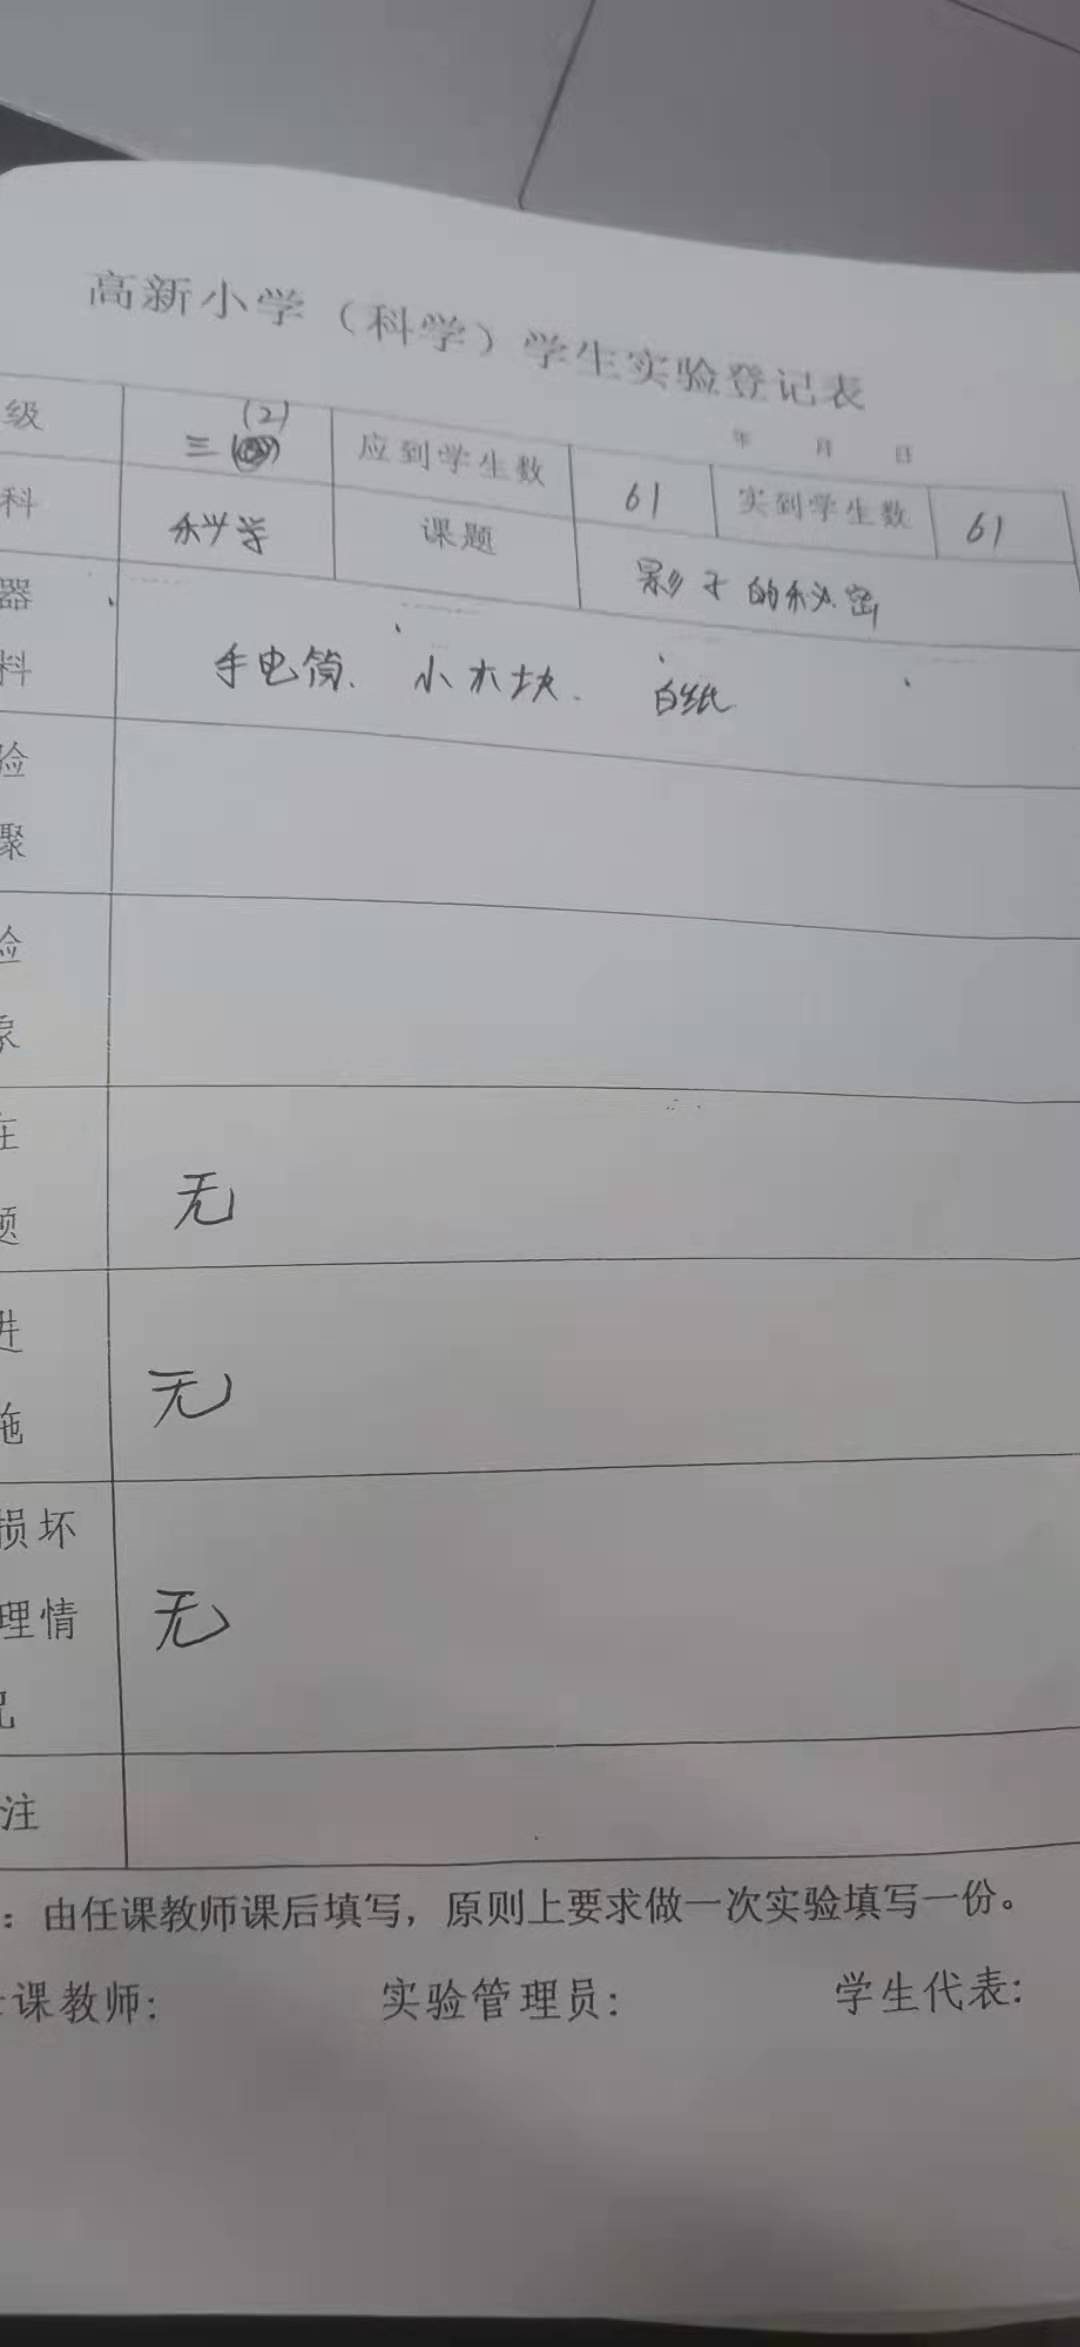 高新小学（科学）学生实验登记表
年 月 日
级 三(2) 应到学生数 61 实到学生数 61
科 科学 课题 影子的秘密
器
料 手电筒、小木块、白纸
验
聚
验
象
在
题 无
进
施 无
损坏
理情 无
况
注
：由任课教师课后填写，原则上要求做一次实验填写一份。
课教师: 实验管理员: 学生代表: